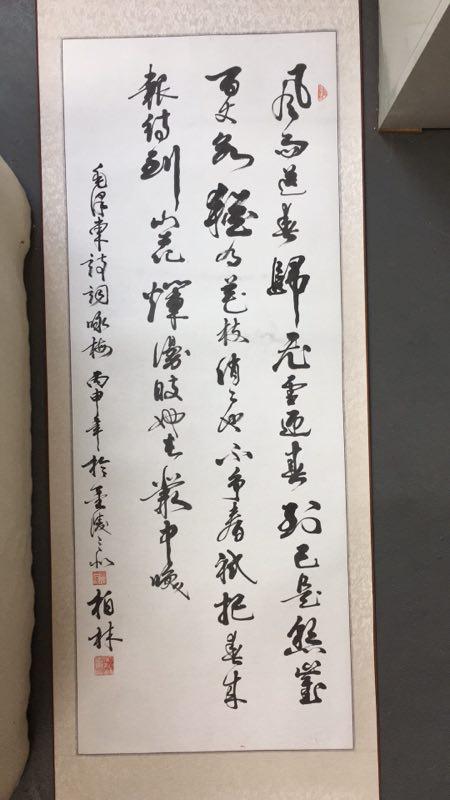 風雨送春歸飛雪迎春到已是懸崖
百丈冰猶有花枝俏々也不争春只把春来
報待到山花爛漫時她在叢中笑
毛澤東詩詞咏梅 丙申年於金陵 柏林